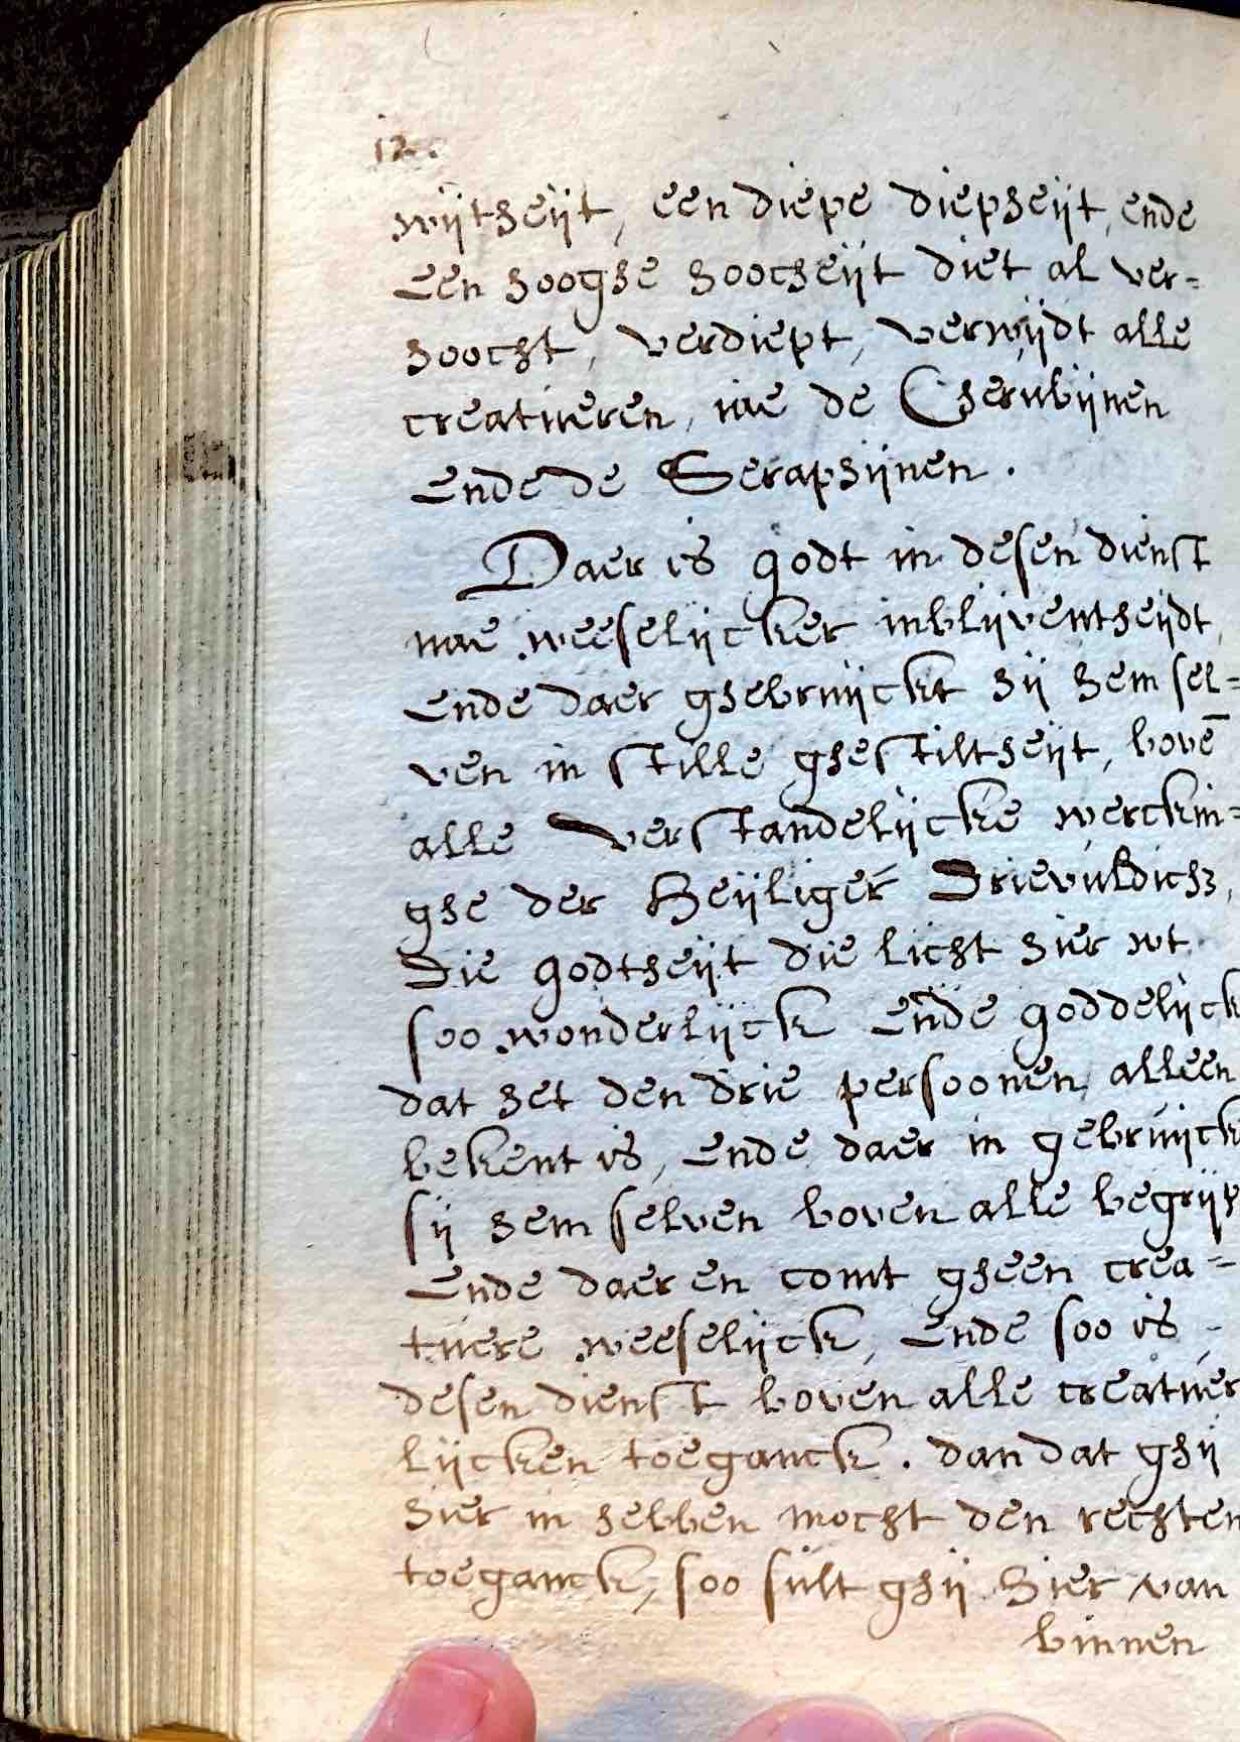 12.
wijtheijt, een diepe diepheijt, ende
een hooghe hoocheijt diet al ver-
hoocht, verdiept, verwijdt alle
creatueren, nae de Cherubijnen
ende de Seraphijnen.
Daer is godt in desen dienst
nae weeselijcker inblijventheijdt,
ende daer ghebruijckt hij hem sel-
ven in stille ghestiltheijt, bovē
alle verstandelijcke werckin-
ghe der Heijliger Drievuldich3,
Die godtheijt die licht hier wt
soo wonderlijck ende goddelijck
dat het den drie persoonen, alleen
bekent is, ende daer in gebruijck
sij hem selven boven alle begrijp
ende daer en comt gheen crea-
tuere weeselijck, ende soo is -
desen dienst boven alle creatuer
lijcken toeganck. dan dat ghij
hier in hebben mocht den rechten
toeganck, soo sult ghij hier van
binnen